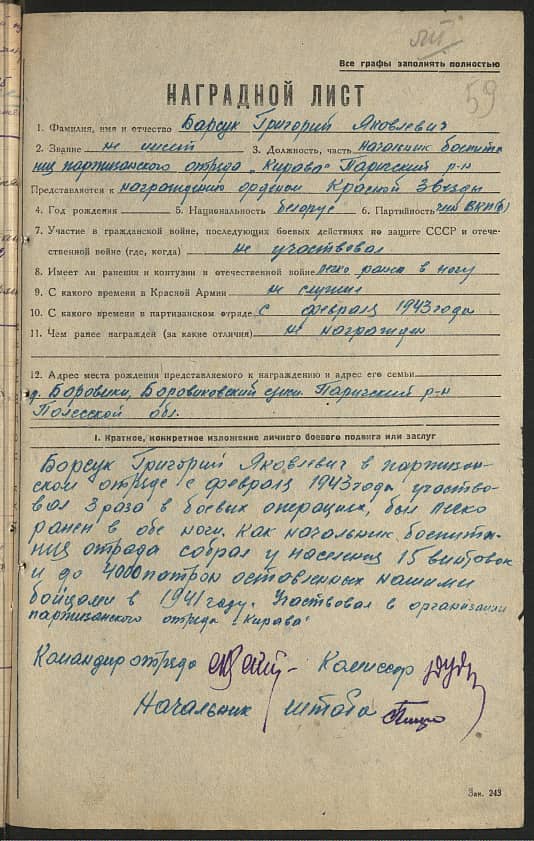 Все графы заполнять полностью
59
НАГРАДНОЙ ЛИСТ
1. Фамилия, имя и отчество Барсук Григорий Яковлевич
2. Звание не имеет 3. Должность, часть начальник боепита-
ниц партизанского отряда „Кирава" Паричский р-н
Представляются к награждению орденом Красной Звезды
4. Год рождения 5. Национальность белорус 6. Партийность чл. ВКП(б)
7. Участие в гражданской войне, последующих боевых действиях по защите СССР и отече-
ственной войне (где, когда) не участвовал
8. Имеет ли ранения и контузии в отечественной войне легко ранен в ногу
9. С какого времени в Красной Армии не служил
10. С какого времени в партизанском отряде с февраля 1943 года
11. Чем ранее награжден (за какие отличия) не награжден
12. Адрес места рождения представляемого к награждению и адрес его семьи
д. Боровики, Боровиковский Паричский р-н
Полесской обл.
I. Краткое, конкретное изложение личного боевого подвига или заслуг
Барсук Григорий Яковлевич в партизан-
ском отряде с февраля 1943 года участво-
вал 3 раза в боевых операциях, был легко
ранен в обе ноги. Как начальник боепита-
ниц отряда собрал у населения 15 винтовок
и до 4000 патрон оставленных нашими
бойцами в 1941 году. Участвовал в организации
партизанского отряда „Кирава"
Командир отряда Комиссар
Начальник штаба
Зак. 243